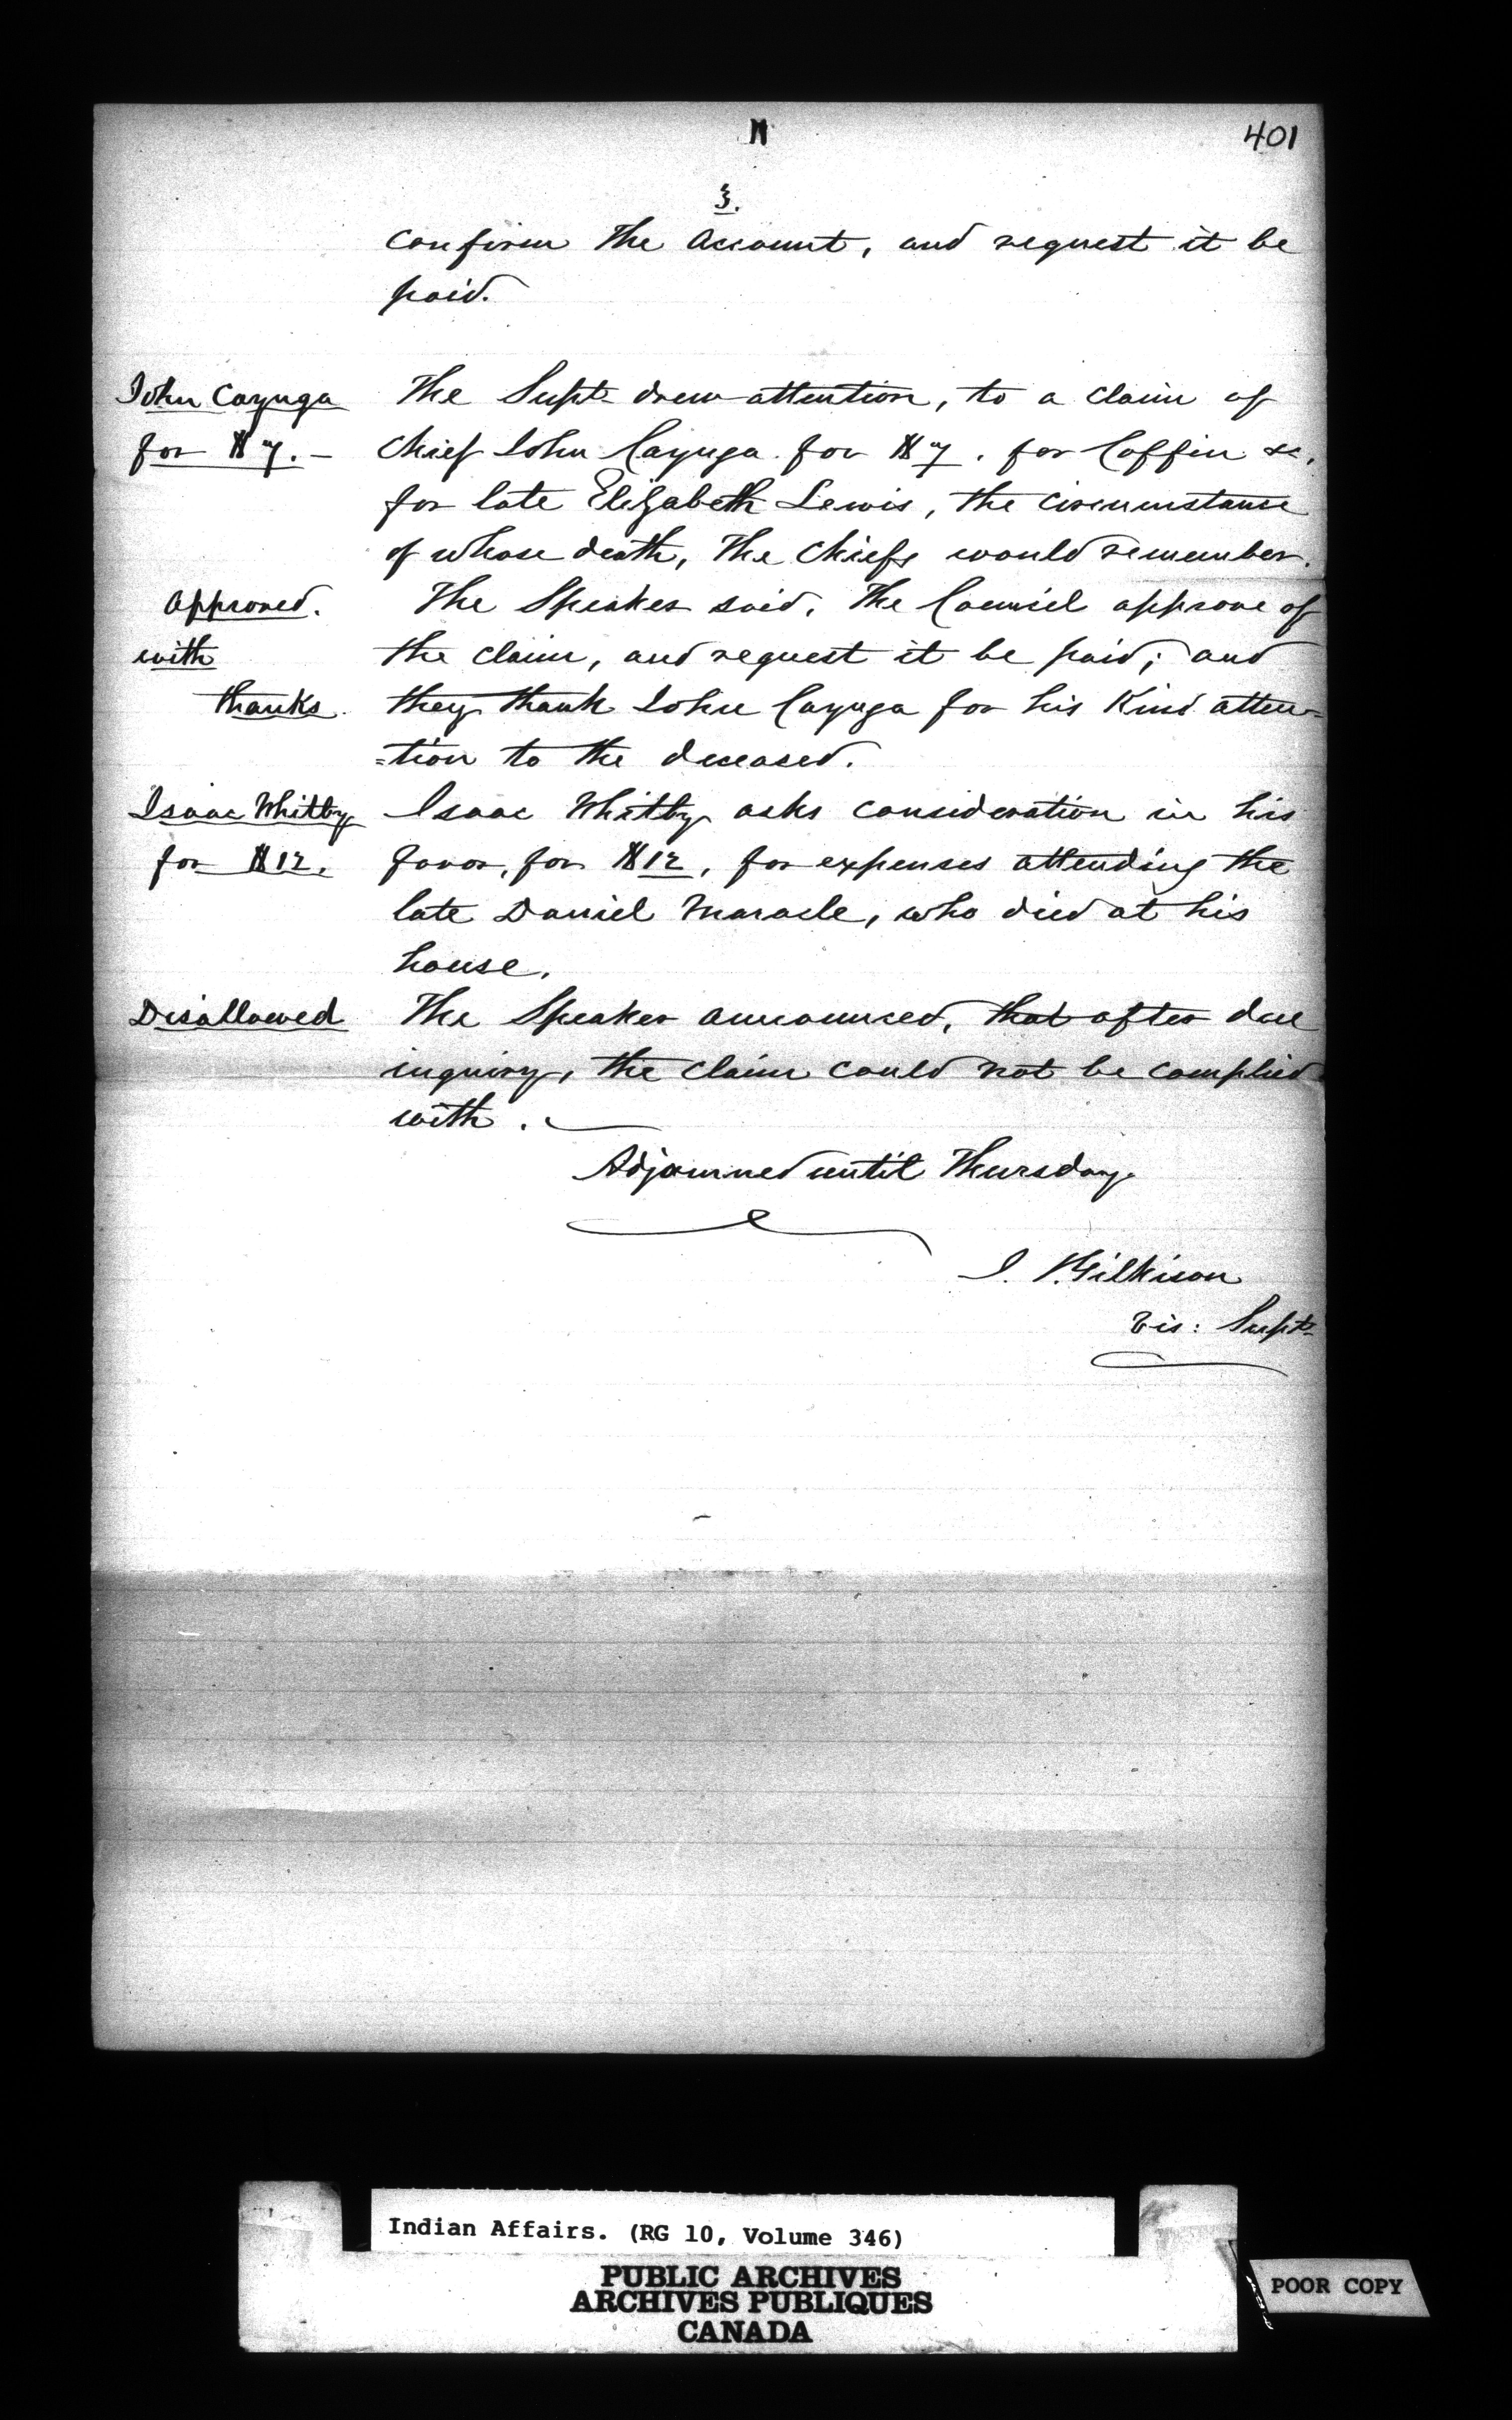 N
401
3.
confirm the account, and request it be
paid.
John Cayuga
for $7. –
The Supt. drew attention, to a claim of
Chief John Cayuga for $7. for Coffin &c,
for late Elizabeth Lewis, the circumstance
of whose death, the Chiefs would remember.
Approved.
with
thanks.
The Speaker said, the Council approve of
the claim, and request it be paid; and
they thank John Cayuga for his kind atten=
=tion to the deceased.
Isaac Whitby
for $12.
Isaac Whitby asks consideration in his
favor, for $12, for expenses attending the
late Daniel Maracle, who died at his
house.
Disallowed
The Speaker announced, that after due
inquiry, the claim could not be complied
with.
Adjourned until Thursday.
J. T. Gilkison
Vis: Supt.
Indian Affairs. (RG 10, Volume 346)
PUBLIC ARCHIVES
ARCHIVES PUBLIQUES
CANADA
POOR COPY